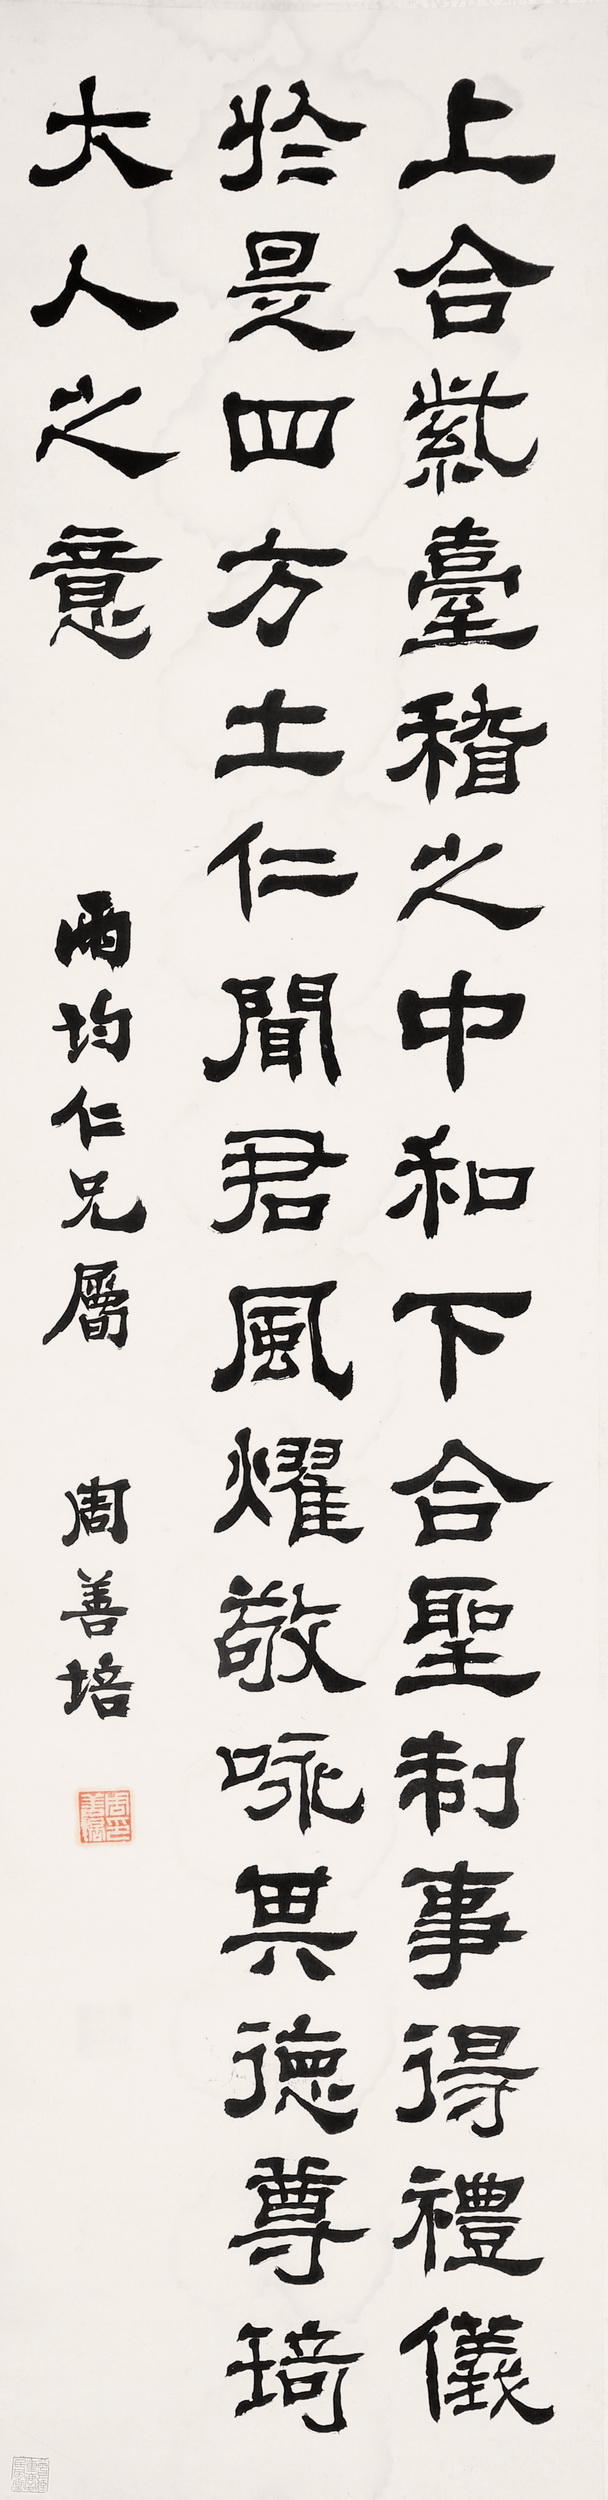 上合紫臺稽之中和下合聖制事得禮儀
於是四方土仁聞君風燿敬咏其德尊琦
大人之意
雨均仁兄屬
周善培